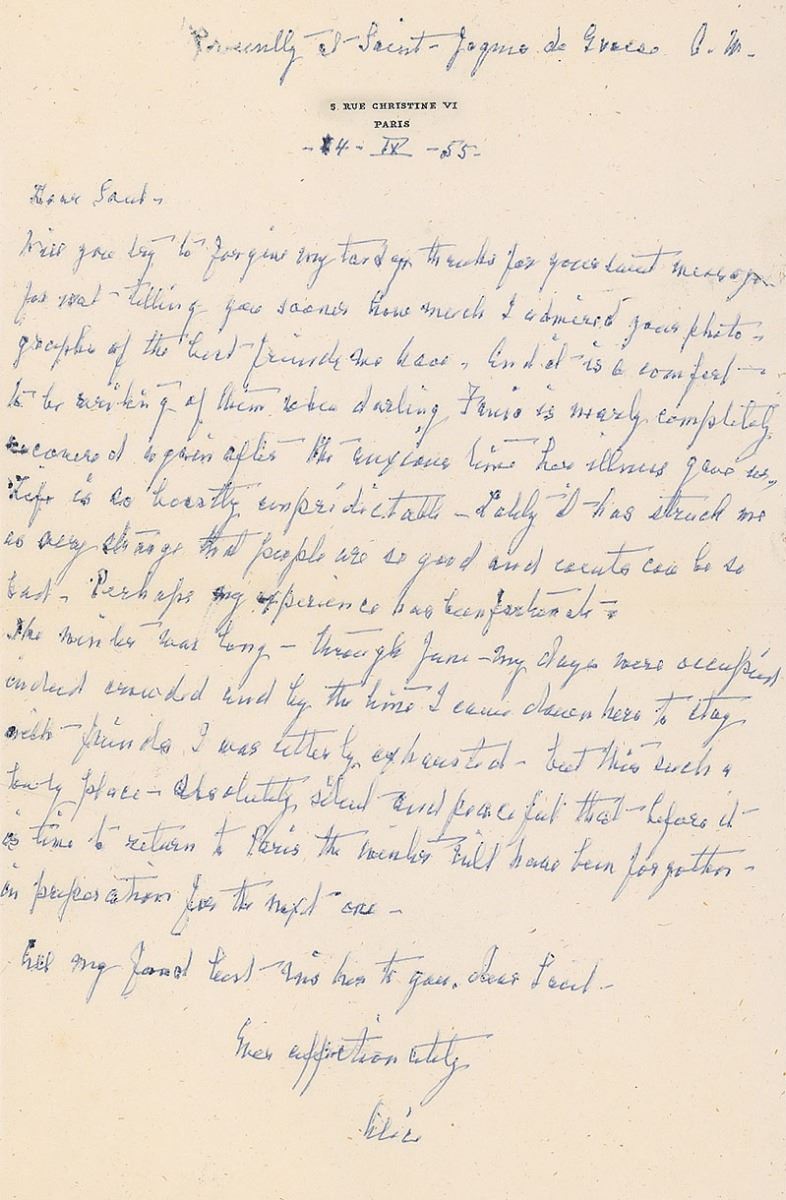 Presently at Saint-Jaques de Grasse A. M.
5 RUE CHRISTINE VI
PARIS
-14- IX -55-
Dear Saul-
Will you try to forgive my tardy thanks for your sweet message
for not telling you sooner how much I admired your photo-
graphs of the best friends we have. And it is a comfort
to be writing of them when darling is nearly completely
recovered again after the anxious time her illness gave us,
Life is so beastly unpredictable - Lately it has struck me
as very strange that people are so good and events can be so
bad - Perhaps my experience has been fortunate -
The winter was long - through June - my days were occupied
indeed crowded and by the time I came down here to stay
with friends I was utterly exhausted - but this such a
lovely place - absolutely silent and peaceful that before it
is time to return to Paris the winter will have been forgotten -
in preparation for the next one -
All my fond best wishes to you, dear Saul -
Ever affectionately
Alice